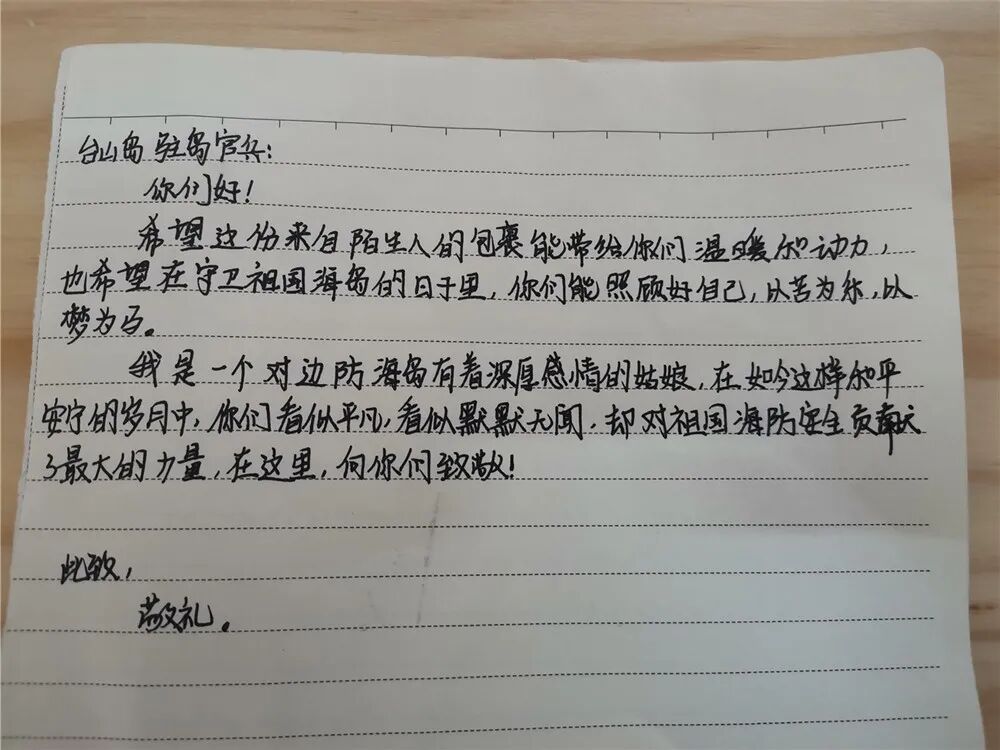 台山岛驻岛官兵：
你们好！
希望这份来自陌生人的包裹能带给你们温暖和动力，
也希望在守卫祖国海岛的日子里，你们能照顾好自己，以苦为乐，以
梦为马。
我是一个对边防海岛有着深厚感情的姑娘，在如今这样和平
安宁的岁月中，你们看似平凡，看似默默无闻，却对祖国海防安全贡献
了最大的力量，在这里，向你们致敬！
此致，
敬礼。